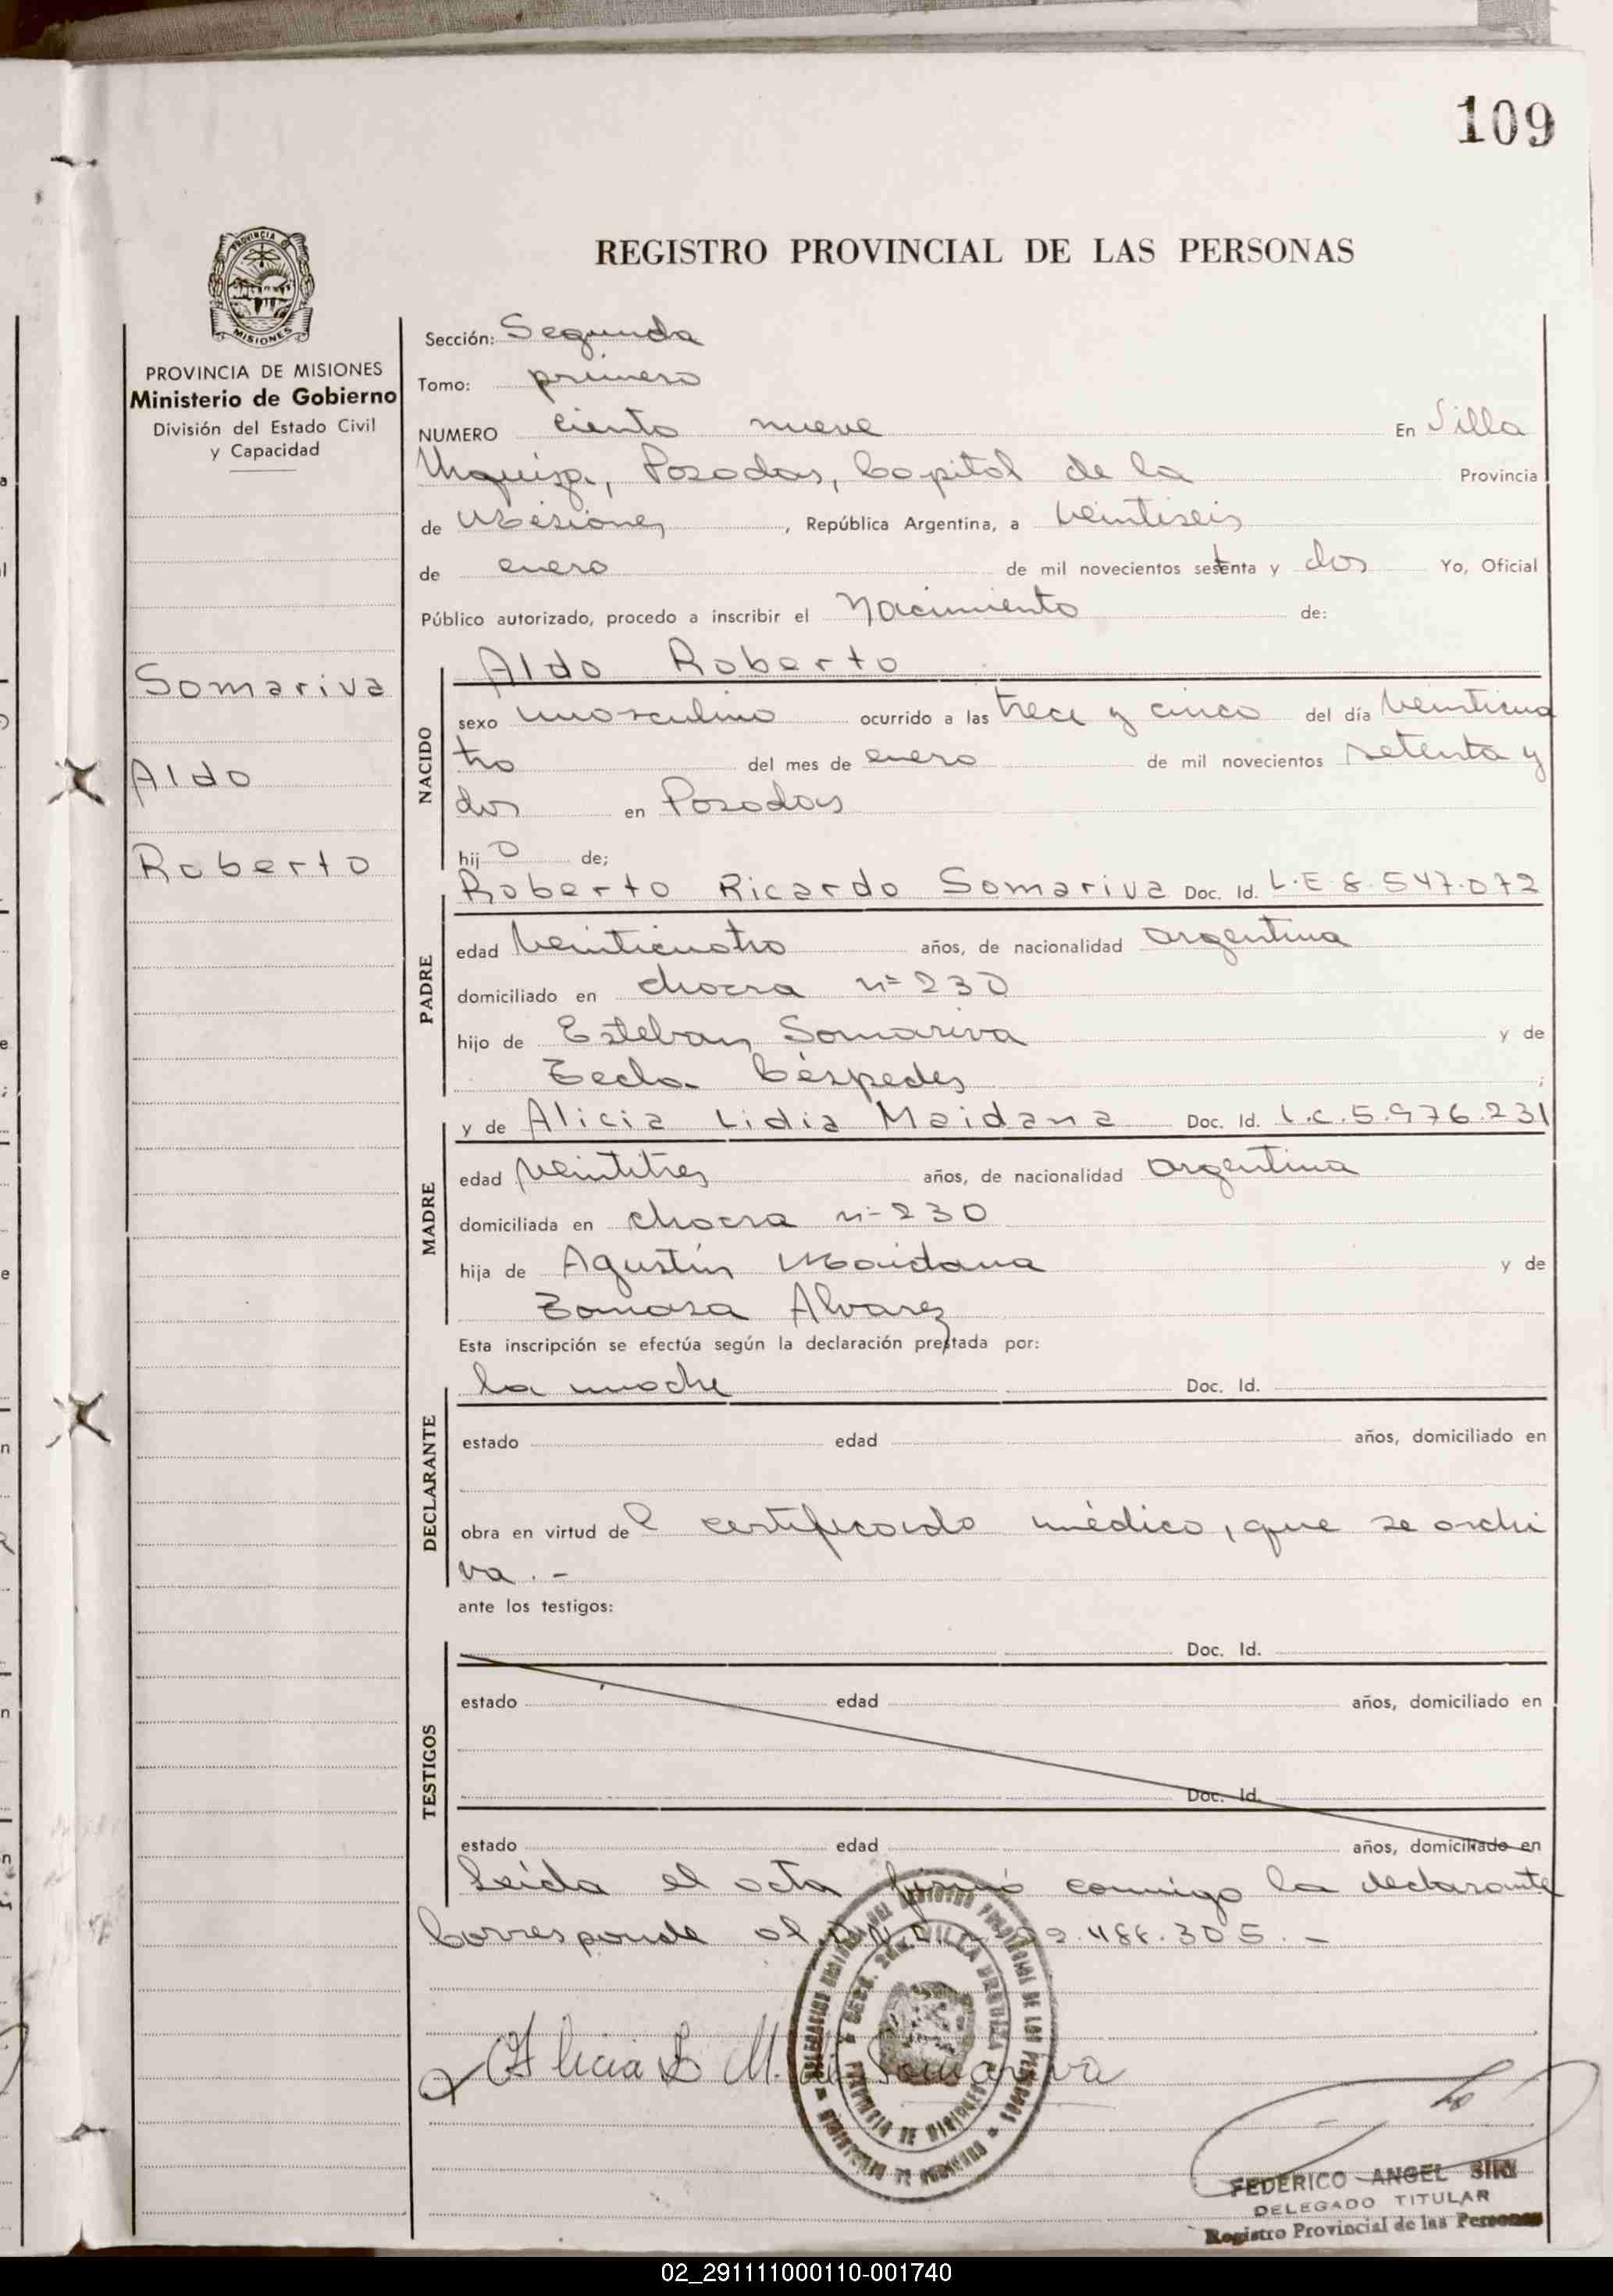 109
REGISTRO PROVINCIAL DE LAS PERSONAS
PROVINCIA DE MISIONES
Ministerio de Gobierno
División del Estado Civil
y Capacidad
Somariva
Aldo
Roberto
Sección: Segunda
Tomo: primero
NUMERO ciento nueve En Villa
Urquiza, Posadas, Capital de la Provincia
de Misiones, República Argentina, a veintiseis
de enero de mil novecientos setenta y dos Yo, Oficial
Público autorizado, procedo a inscribir el Nacimiento de:
NACIDO
Aldo Roberto
sexo masculino ocurrido a las trece y cinco del día veinticua
tro del mes de enero de mil novecientos setenta y
dos en Posadas
hijo de;
PADRE
Roberto Ricardo Somariva Doc. Id. L.E 8.547.072
edad veinticuatro años, de nacionalidad argentina
domiciliado en chacra nº 230
hijo de Esteban Somariva y de
Tecla Céspedes ;
MADRE
y de Alicia Lidia Maidana Doc. Id. L.C.5.976.231
edad veintitres años, de nacionalidad argentina
domiciliada en chacra nº 230
hija de Agustín Maidana y de
Tomasa Alvarez
Esta inscripción se efectúa según la declaración prestada por:
DECLARANTE
la madre Doc. Id.
estado edad años, domiciliado en
obra en virtud del certificado médico, que se archi
va.-
ante los testigos:
TESTIGOS
Doc. Id.
estado edad años, domiciliado en
Doc. Id.
estado edad años, domiciliado en
Leída el acta firmó conmigo la declarante
Corresponde al
Alicia L M. de Somariva
FEDERICO ANGEL
DELEGADO TITULAR
Registro Provincial de las Personas
02_291111000110-001740